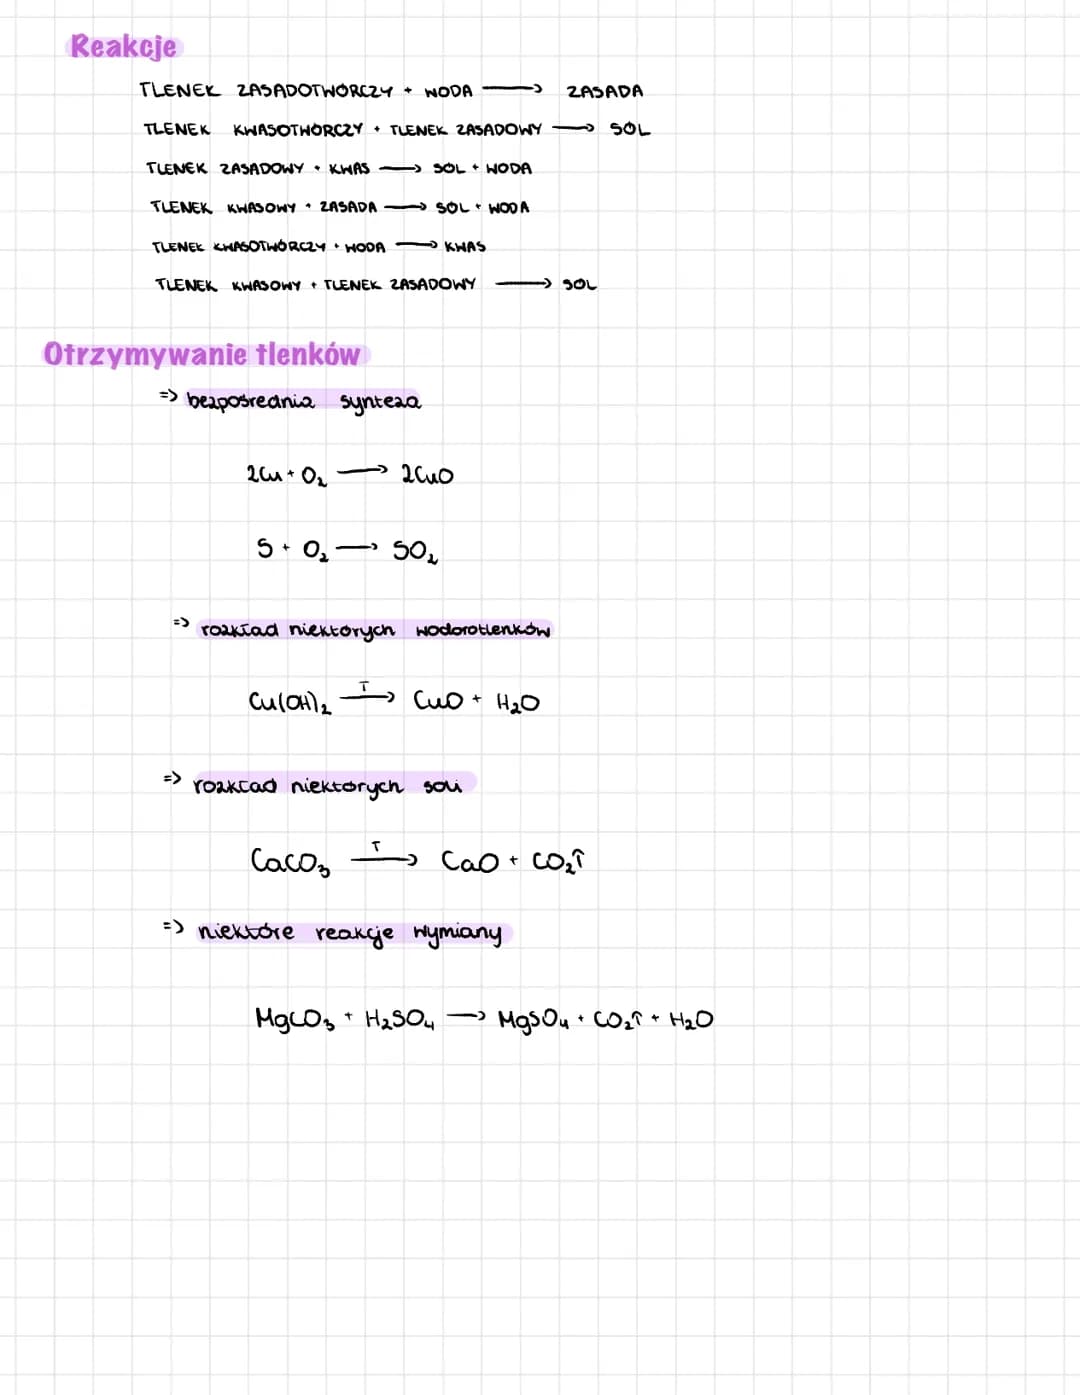 Reakcje
TLENEK ZASADOTWÓRCZY + WODA ⟶ ZASADA
TLENEK KWASOTWÓRCZY + TLENEK ZASADOWY ⟶ SÓL
TLENEK ZASADOWY + KWAS ⟶ SÓL + WODA
TLENEK KWASOWY + ZASADA ⟶ SÓL + WODA
TLENEK KWASOTWÓRCZY + WODA ⟶ KWAS
TLENEK KWASOWY + TLENEK ZASADOWY ⟶ SÓL
Otrzymywanie tlenków
=> bezpośrednia synteza
2Cu + O₂ ⟶ 2CuO
S + O₂ ⟶ SO₂
=> rozkład niektórych wodorotlenków
Cu(OH)₂ T⟶ CuO + H₂O
=> rozkład niektórych soli
CaCO₃ T⟶ CaO + CO₂↑
=> niektóre reakcje wymiany
MgCO₃ + H₂SO₄ ⟶ MgSO₄ + CO₂↑ + H₂O